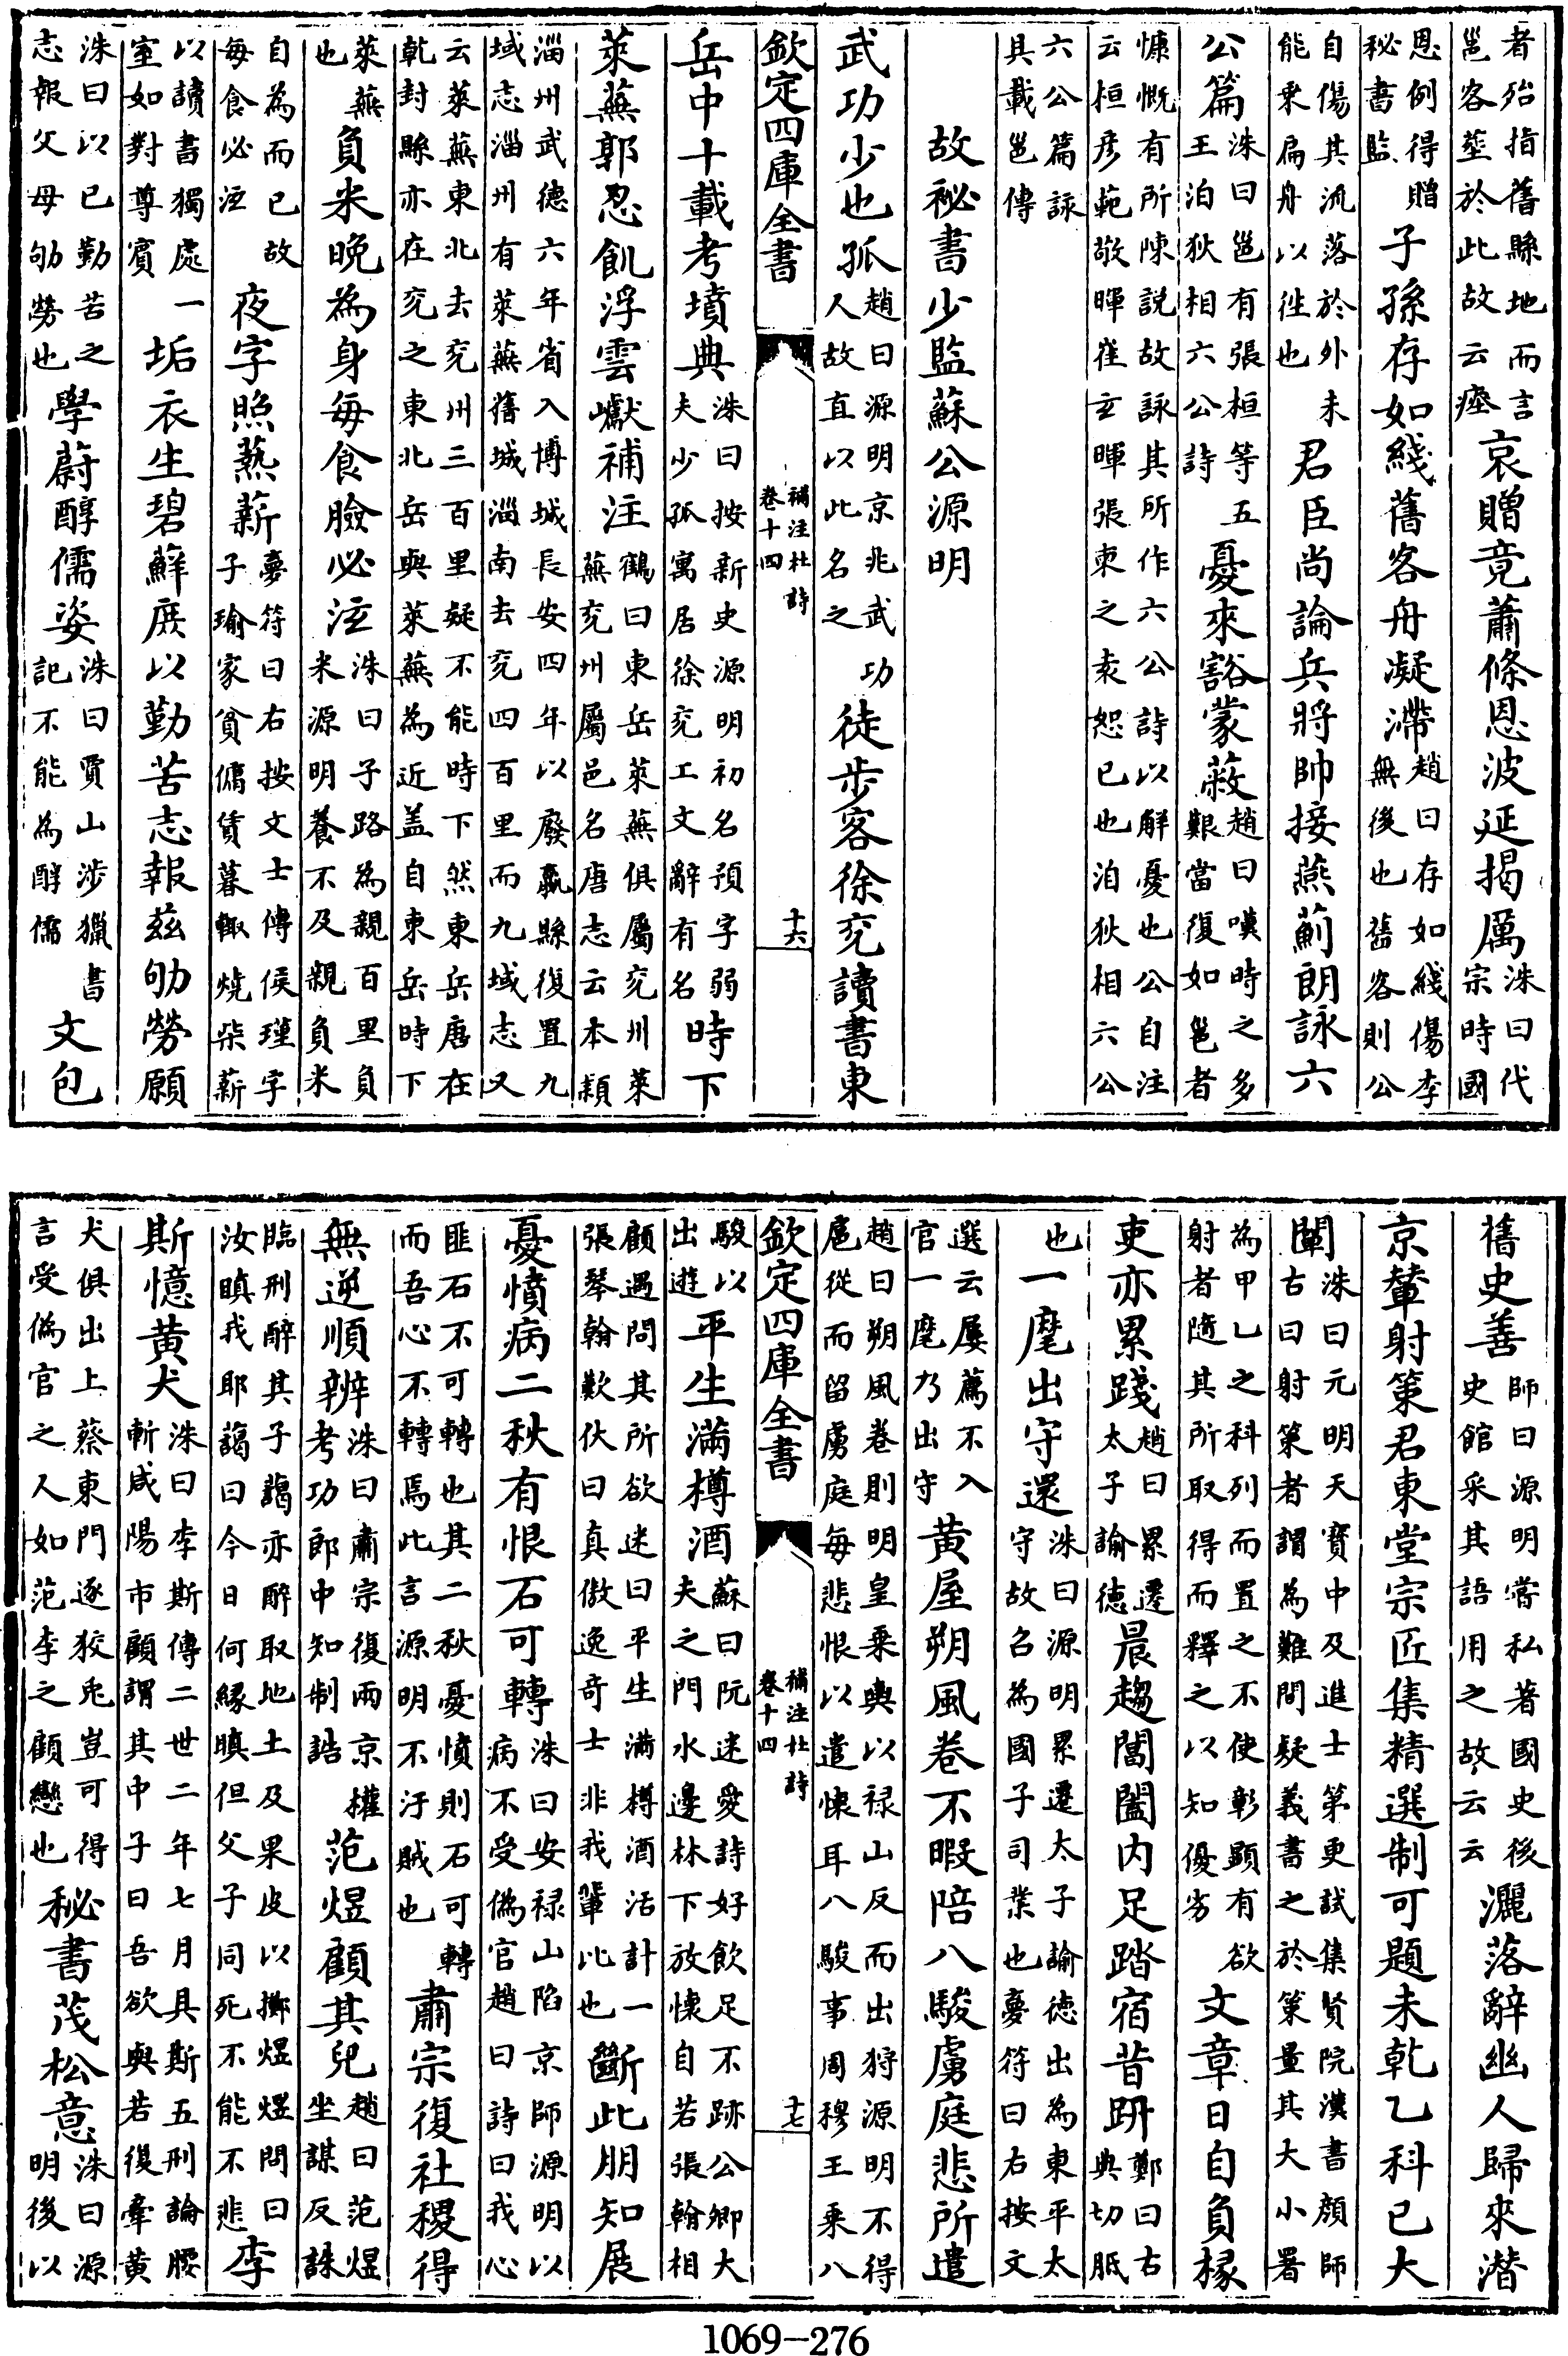 者殆指舊縣地而言邕客塟於此故云瘞哀贈竟蕭條恩波延揭厲洙曰代宗時國
恩例得贈秘書監子孫存如綫舊客舟凝滯趙曰存如綫傷李無後也舊客則公
自傷其流落於外未能乗扁舟以徃也君臣尚論兵將帥接燕薊朗詠六
公篇洙曰邕有張桓等五王洎狄相六公詩憂來豁蒙蔽趙曰嘆時之多艱當復如邕者
慷慨有所陳説故詠其所作六公詩以解憂也公自注云桓彦範敬暉崔玄暉張柬之袁恕已也洎狄相六公
六公篇詠具載邕傳
故秘書少監蘇公源明
武功少也孤趙曰源明京兆武功人故直以此名之徒步客徐兖讀書東
欽定四庫全書
補注杜詩
卷十四
十六
岳中十載考墳典洙曰按新史源明初名預字弱夫少孤寓居徐兖工文辭有名時下
萊蕪郭忍飢浮雲巘補注鶴曰東岳萊蕪俱屬兖州萊蕪兖州屬邑名唐志云本𩔖
淄州武德六年省入博城長安四年以廢嬴縣復置九域志淄州有萊蕪舊城淄南去兖四百里而九域志又
云萊蕪東北去兖州三百里疑不能時下然東岳唐在乾封縣亦在兖之東北岳與萊蕪為近盖自東岳時下
萊蕪也負米晚為身每食臉必泫洙曰子路為親百里負米源明養不及親負米
自為而已故每食必泫夜字照爇薪夢符曰右按文士傳侯瑾字子瑜家貧傭賃暮輙燒柴薪
以讀書獨處一室如對尊賓垢衣生碧蘚庶以勤苦志報兹劬勞願
洙曰以已勤苦之志報父母劬勞也學蔚醇儒姿洙曰賈山涉獵書記不能為醇儒文包
舊史善師曰源明嘗私著國史後史館采其語用之故云云灑落辭幽人歸來潛
京輦射策君東堂宗匠集精選制可題未乾乙科已大
闡洙曰元明天寶中及進士第更試集賢院漢書顔師古曰射策者謂為難問疑義書之於策量其大小署
為甲乙之科列而置之不使彰顯有欲射者隨其所取得而釋之以知優劣文章日自負掾
吏亦累踐趙曰累遷太子諭德晨趨閶闔内足踏宿昔趼鄭曰古典切胝
也一麾出守還洙曰源明累遷太子諭德出為東平太守故召為國子司業也夢符曰右按文
選云屢薦不入官一麾乃出守黄屋朔風卷不暇陪八駿虜庭悲所遣
趙曰朔風卷則明皇乗輿以禄山反而出狩源明不得扈從而留虜庭每悲恨以遣懐耳八駿事周穆王乗八
欽定四庫全書
補注杜詩
卷十四
十七
駿以出遊平生滿樽酒蘇曰阮逑愛詩好飲足不跡公卿大夫之門水邊林下放懐自若張翰相
顧過問其所欲逑曰平生滿樽酒活計一張琴翰歎伏曰真傲逸奇士非我輩比也斷此朋知展
憂憤病二秋有恨石可轉洙曰安禄山陷京師源明以病不受偽官趙曰詩曰我心
匪石不可轉也其二秋憂憤則石可轉而吾心不轉焉此言源明不汙賊也肅宗復社稷得
無逆順辨洙曰肅宗復兩京權考功郎中知制誥范煜顧其兒趙曰范煜坐謀反誅
臨刑醉其子藹亦醉取地土及果皮以擲煜煜問曰汝瞋我耶藹曰今日何縁瞋但父子同死不能不悲李
斯憶黄犬洙曰李斯傳二世二年七月具斯五刑論腰斬咸陽市顧謂其中子曰吾欲與若復牽黄
犬俱出上蔡東門逐狡兎豈可得言受偽官之人如范李之顧戀也秘書茂松意洙曰源明後以
1069-276